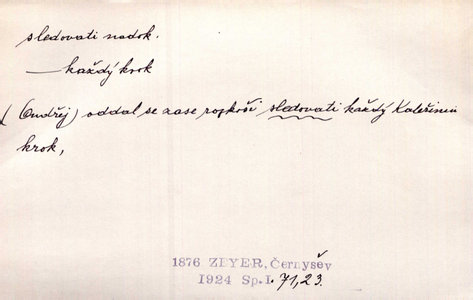 sledovati nedok.
— každý krok
(Ondřej) oddal se zase rozkoši sledovati každý Kateřinin
krok,
1876 ZEYER, Černyšev
1924 Sp. I. 71,23.